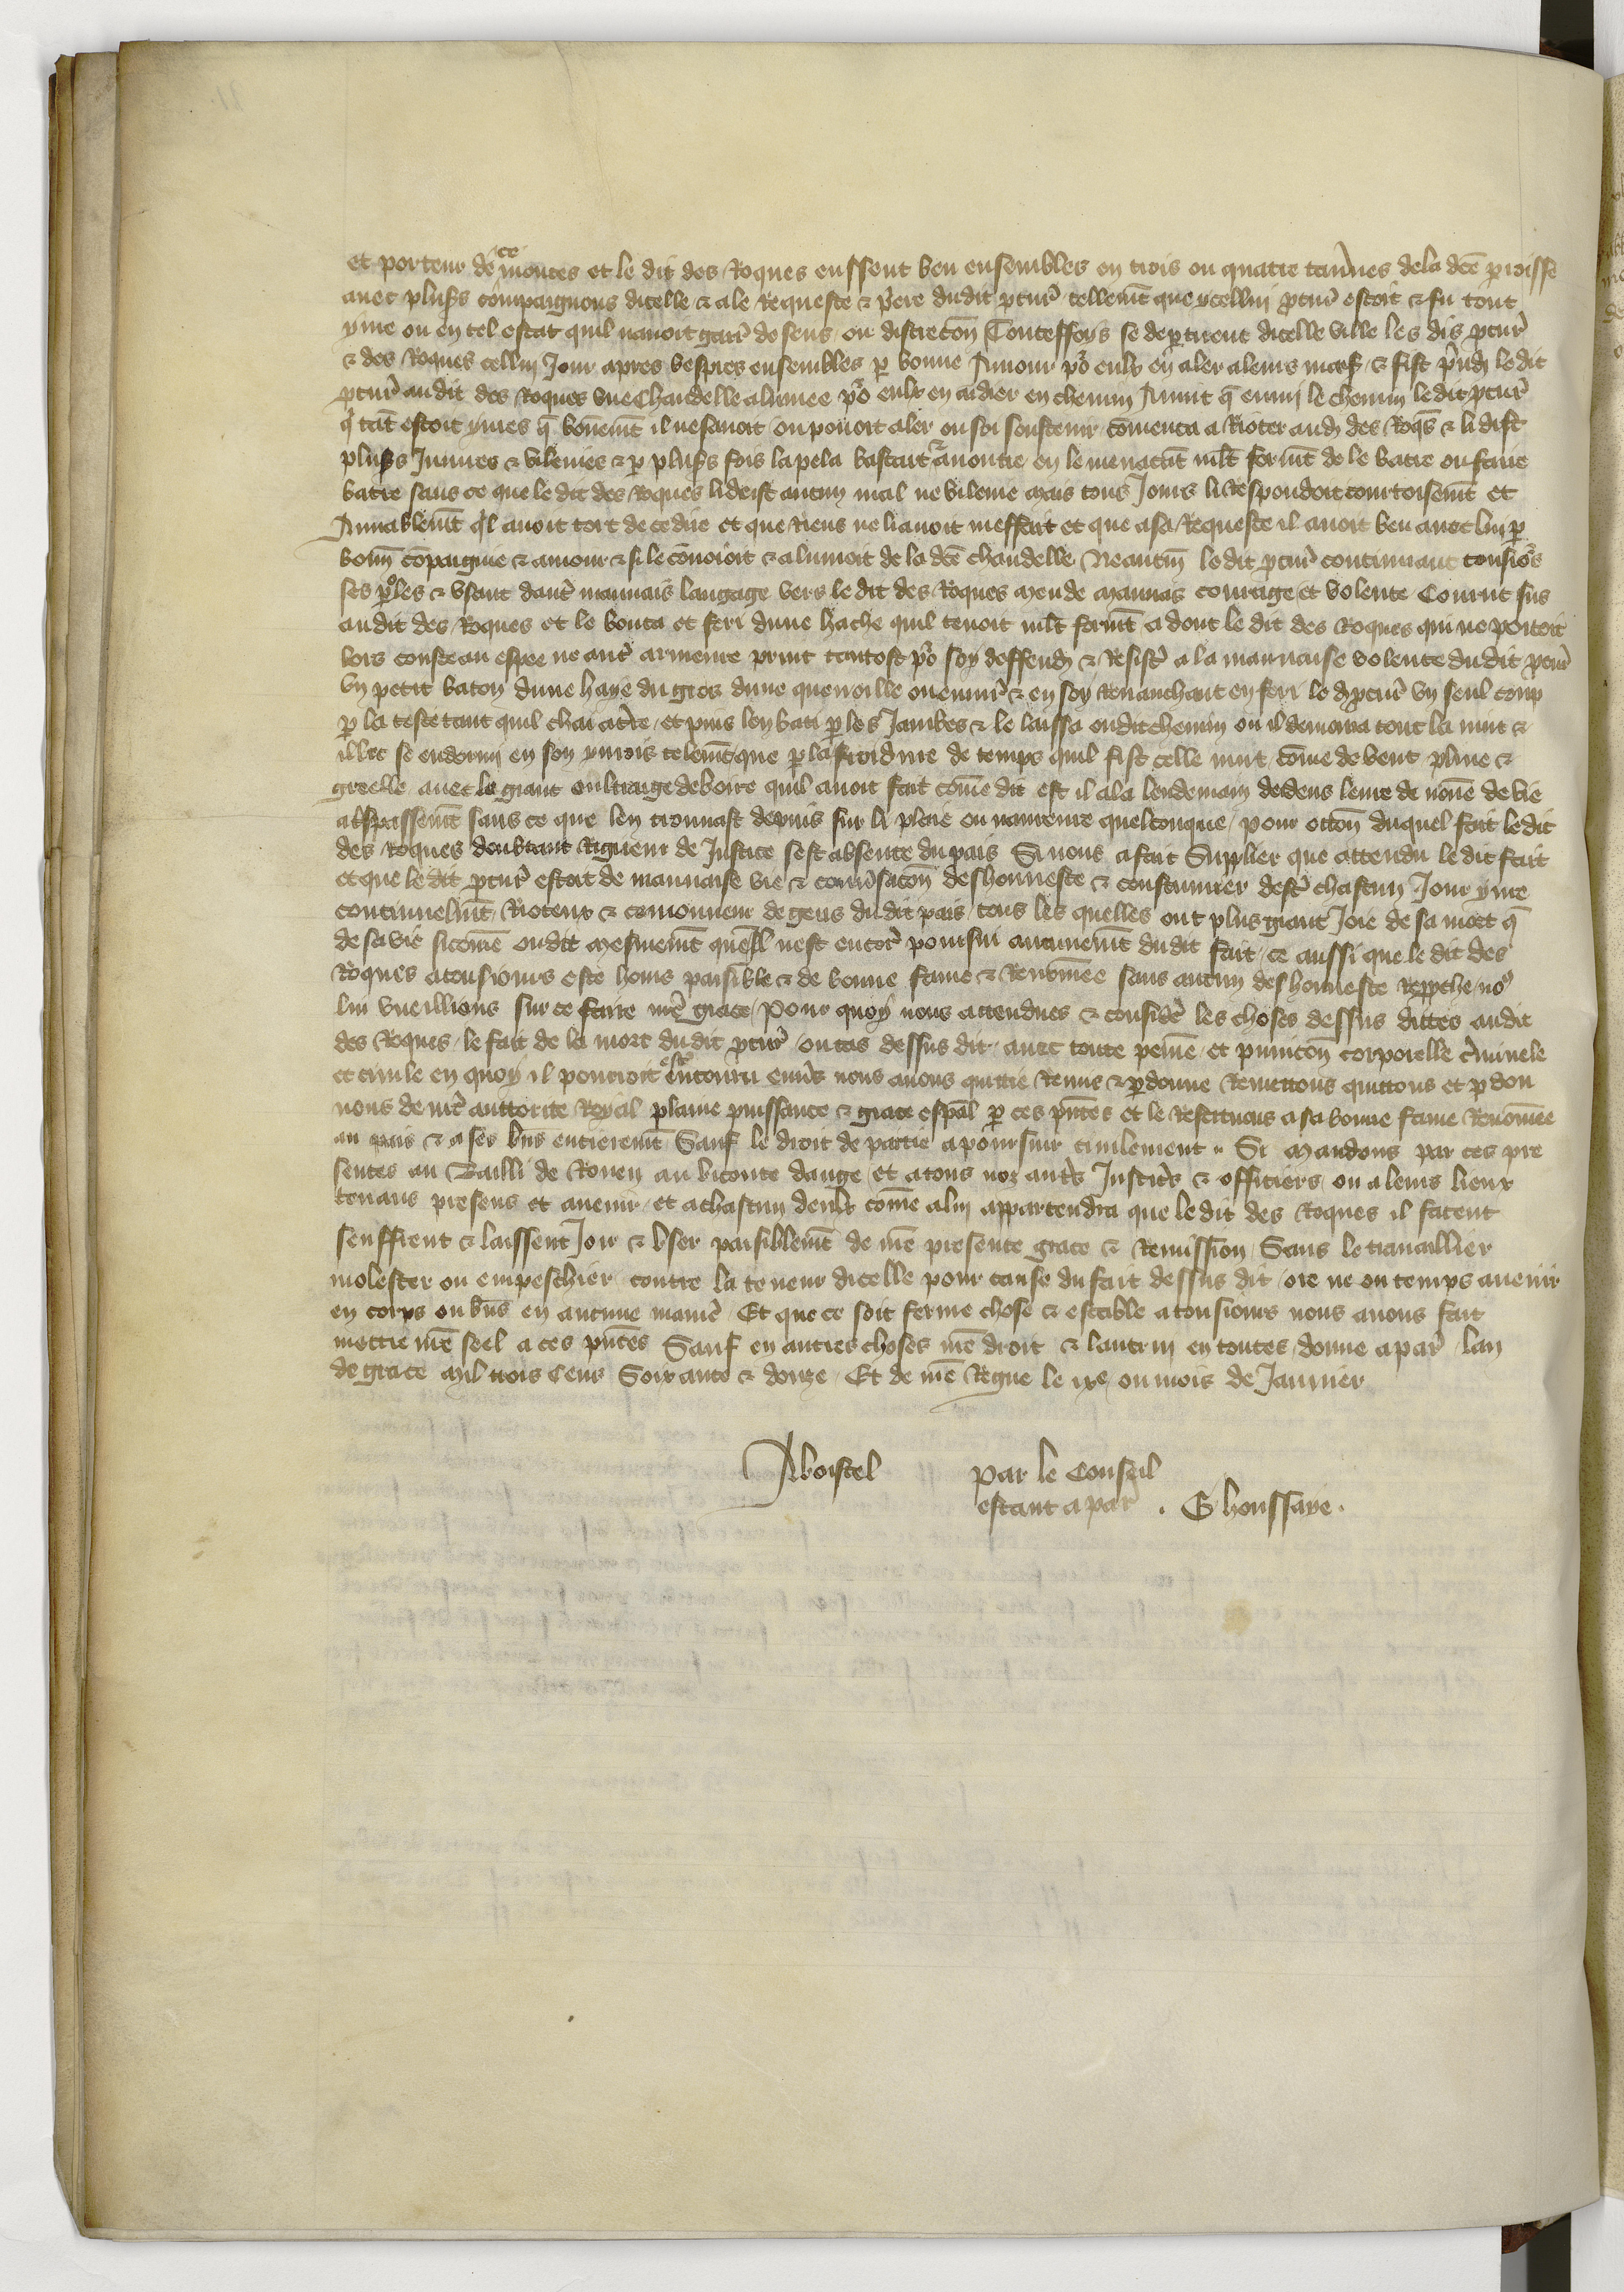 et porteur de ce montes et le dit des Roques eussent beu ensembles en trois ou quatre tau̾nes dela dc̄e ꝑroisse
auec plus̾s cōmpaignons dicelle & ala Requeste & p̾ere dudit ꝓcur̾ tellemt̄ que ycellui ꝓcur̾ estoit & fu tout
yure ou en tel estat quil nauoit gair̾ de sens ou discrecōn Touteffoys se deꝑtirent dicelle ville les dis ꝓcur̾
& des Roques cellui Jour apres vespres ensembles ꝑ bonne Amour po᷒ eulx en aler aleurs mais̾ & fist p̾ndr̾ le dit
ꝓcur̾ audit des Roques vne Chandelle alumee po᷒ eulx en aidier en chemin Auint q̄ enmi le chemin le dit ꝓcur̾
q̾ tāt estoit yures q̄ bōnemt̄ il ne sauoit ou pouoit aler ou soi soustenir cōmenca a Rioter aud̾ des Roq̄s & li dist
plus̾s Iniures & vilenies & ꝑ plus̾s fois lapela bastart & auoutre en le menacāt ml̄t formt̄ de le batre ou faire
batre sans ce que le dit des Roques li deist aucun mal ne vilenie mais tous Jours li respondoit courtoisemt̄ et
Amiablemt̄ q̾l auoit tort de ce dire et que riens ne li auoit meffait et que a sa Requeste il auoit beu auec lui ꝑ
bonn̄ cōpaignie & amour & si le cōuoioit & alumoit de la dc̄e chandelle Neantm̄ le dit ꝓcur̾ continuant tousio᷒s
ses ꝑoles & vsant dautr̾ mauuais langage vers le dit des Roques meu de mauuaiz courage et volente Courut sus
audit des Roques et le bouta et feri dune hache quil tenoit ml̄t formt̄ a dont le dit des Roques qui ne portoit
lors cousteau espee ne autr̾ armeure print tantost po᷒ soy deffendr̾ & Resist̾ a la mauuaise volente dudit ꝓcur̾
vn petit baton dune haye du gros dune quenoille ou enuir̾ & en soy Reuanchant en feri le d̾ ꝓcur̾ vn seul coup
ꝑ la teste tant quil chai at̾re et puis len bati ꝑ les Jambes & le laissa oudit chemin ou il demoura tout la nuit &
illec se endormi en son yurois telemt̄ que ꝑ la froidure de temps quil fist celle nuit cōme de vent pluie &
greelle auec le grant oultrage de boire quil auoit fait cōme dit est il ala lendemain dedens leure de nonē de vie
at̾spassemt̄ sans ce que len trouuast depuis sur li plaie ou naureure quelconque pour occōn duquel fait le dit
des Roques doubtant Rigueur de Justice sest absente du pais Si nous a fait Supplier que attendu le dit fait
et que le dit ꝓcur̾ estoit de mauuaise vie & conu̾sacōn deshonneste & coustumier destr̾ chascun Jour yure
continuelmt̄ Rioteux & tomouueur de gens dudit pais tous les quelles ont plus grant Joie de sa mort q̄
de sa vie si cōme on dit mesmemt̄ quell nest encor̾ poursui aucunemt̄ dudit fait ce aussi que le dit des
Roques a tousiours este hōms paisible & de bonne fame & Renōmee sans aucun deshonneste Repproche no᷒
lui vueillions sur ce faire nr̄e grace Pour quoy nous attendues & consider̾ les choses dessus dittes audit
des Roques le fait de la mort dudit ꝓcur̾ ou cas dessus dit auec toute peinne et punicōn corporelle c̾minele
et ciuile en quoy il pourroit estr̾ encouru enu̾s nous auons quittie Remis & ꝑdonne Remettons quittons et ꝑdon
nons de nr̄e auttorite Royal plaine puissance & grace espāl ꝑ ces pn̄tes et le Restituons a sa bonne fame Renōmee
au pais & a ses bn̄s entieremt̄ Sauf le droit de partie a poursuir ciuilement Si mandons par ces pre
sentes au Bailli de Rouen au viconte dauge et a tous noz autr̾s Justic̾s & officiers ou a leurs lieux
tenans presens et auenir et a chascun deulx cōme a lui appartendra que le dit des Roques il facent
seuffrent & laissent Joir & vser paisiblemt̄ de nr̄e presente grace & Remission Sans le trauaillier
molester ou empeschier contre la teneur dicelle pour cause du fait dessus dit ore ne ou temps auenir
en corps ou bn̄s en aucune manier̾ Et que ce soit ferme chose & estable a tousiours nous auons fait
mettre nr̄e seel a ces pn̄tes Sauf en autres choses nr̄e droit & lautrui en toutes donne a par̾ lan
de grace mil trois Cens Soixante & douze Et de nr̄e Regne le ixe ou mois de Januier
Aboistel
Par le Conseil
estant a par̾ . G houssaye .